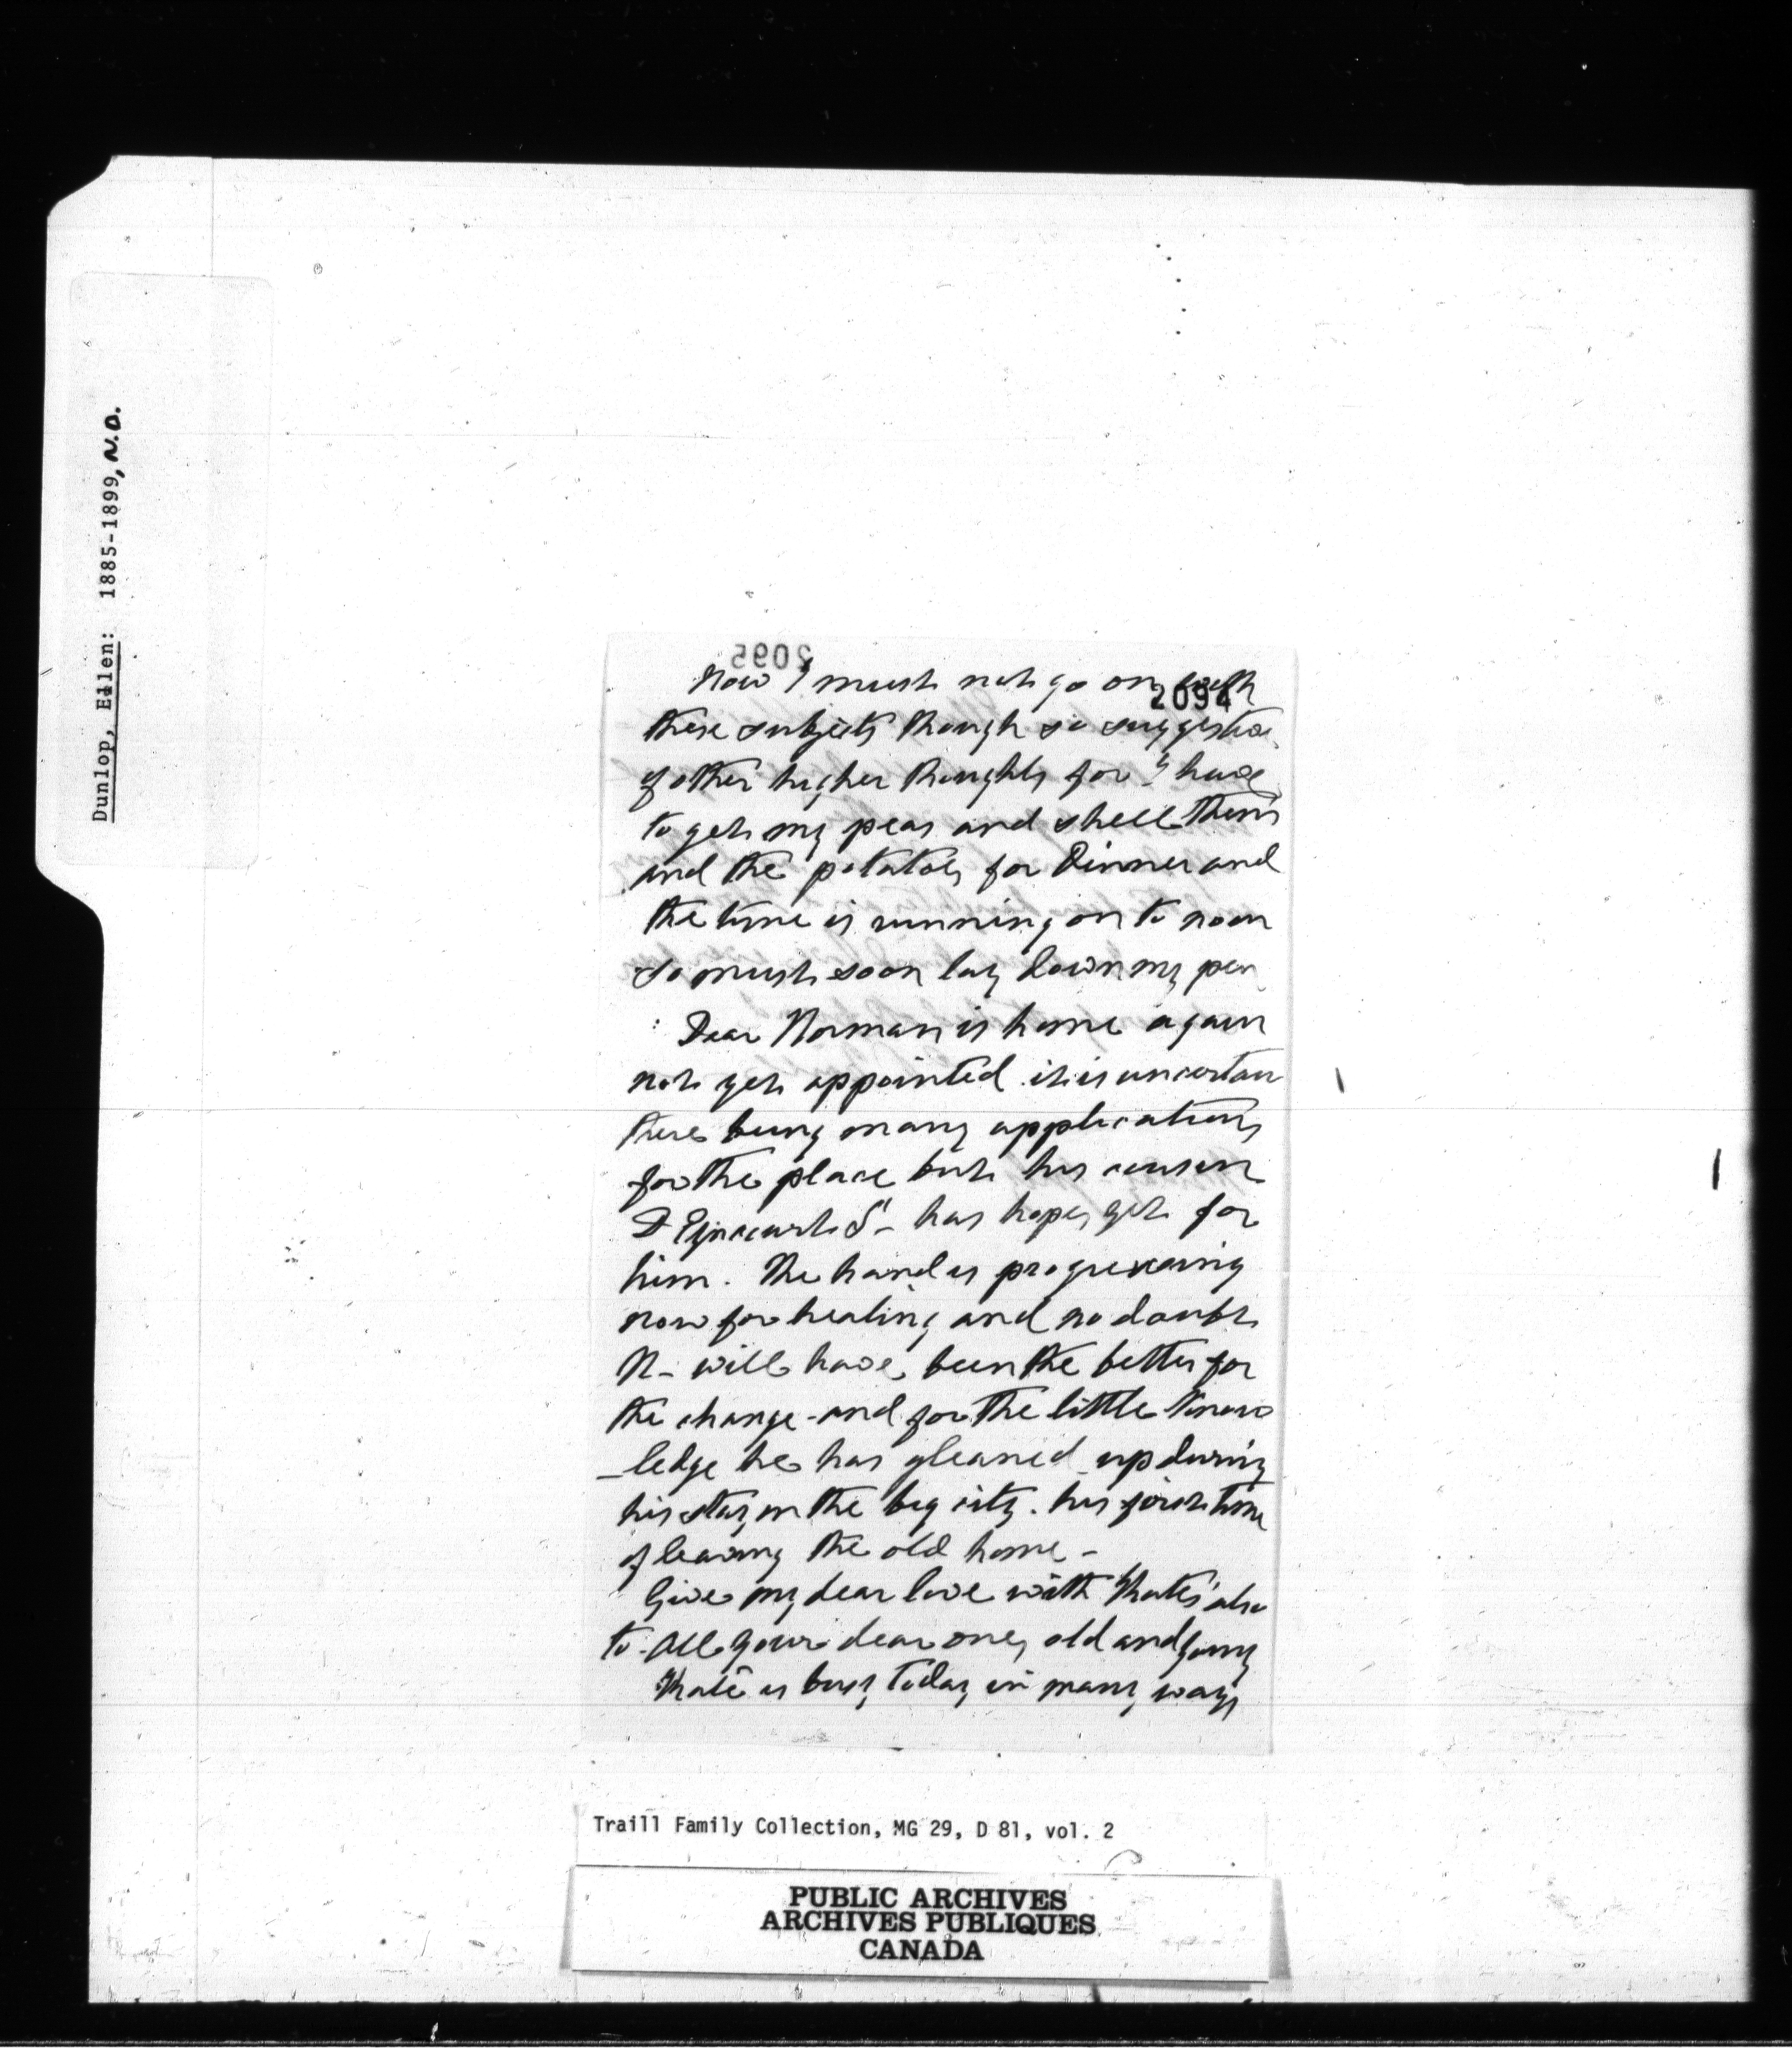 Dunlop, Ellen: 1885-1899, N.D.
2095
2094
Now I must not go on with
these subjects though so suggestive
of other higher thoughts for I have
to get my peas and shell them
and the potatoes for Dinner and
the time is running on to noon
so must soon lay down my pen
Dear Norman is home again
not yet appointed it is uncertain
there being many applications
for the place but his cousin
has hopes yet for
him. The hand is progressing
now for healing and no doubt
N- will have been the better for
the change - and for the little know
-ledge he has gleaned up during
his stay in the big city. his first time
of leaving the old home -
Give my dear love with Kate's also
to all your dear ones old and young
Kate is busy today in many ways
Traill Family Collection, MG 29, D 81, vol. 2
PUBLIC ARCHIVES
ARCHIVES PUBLIQUES
CANADA